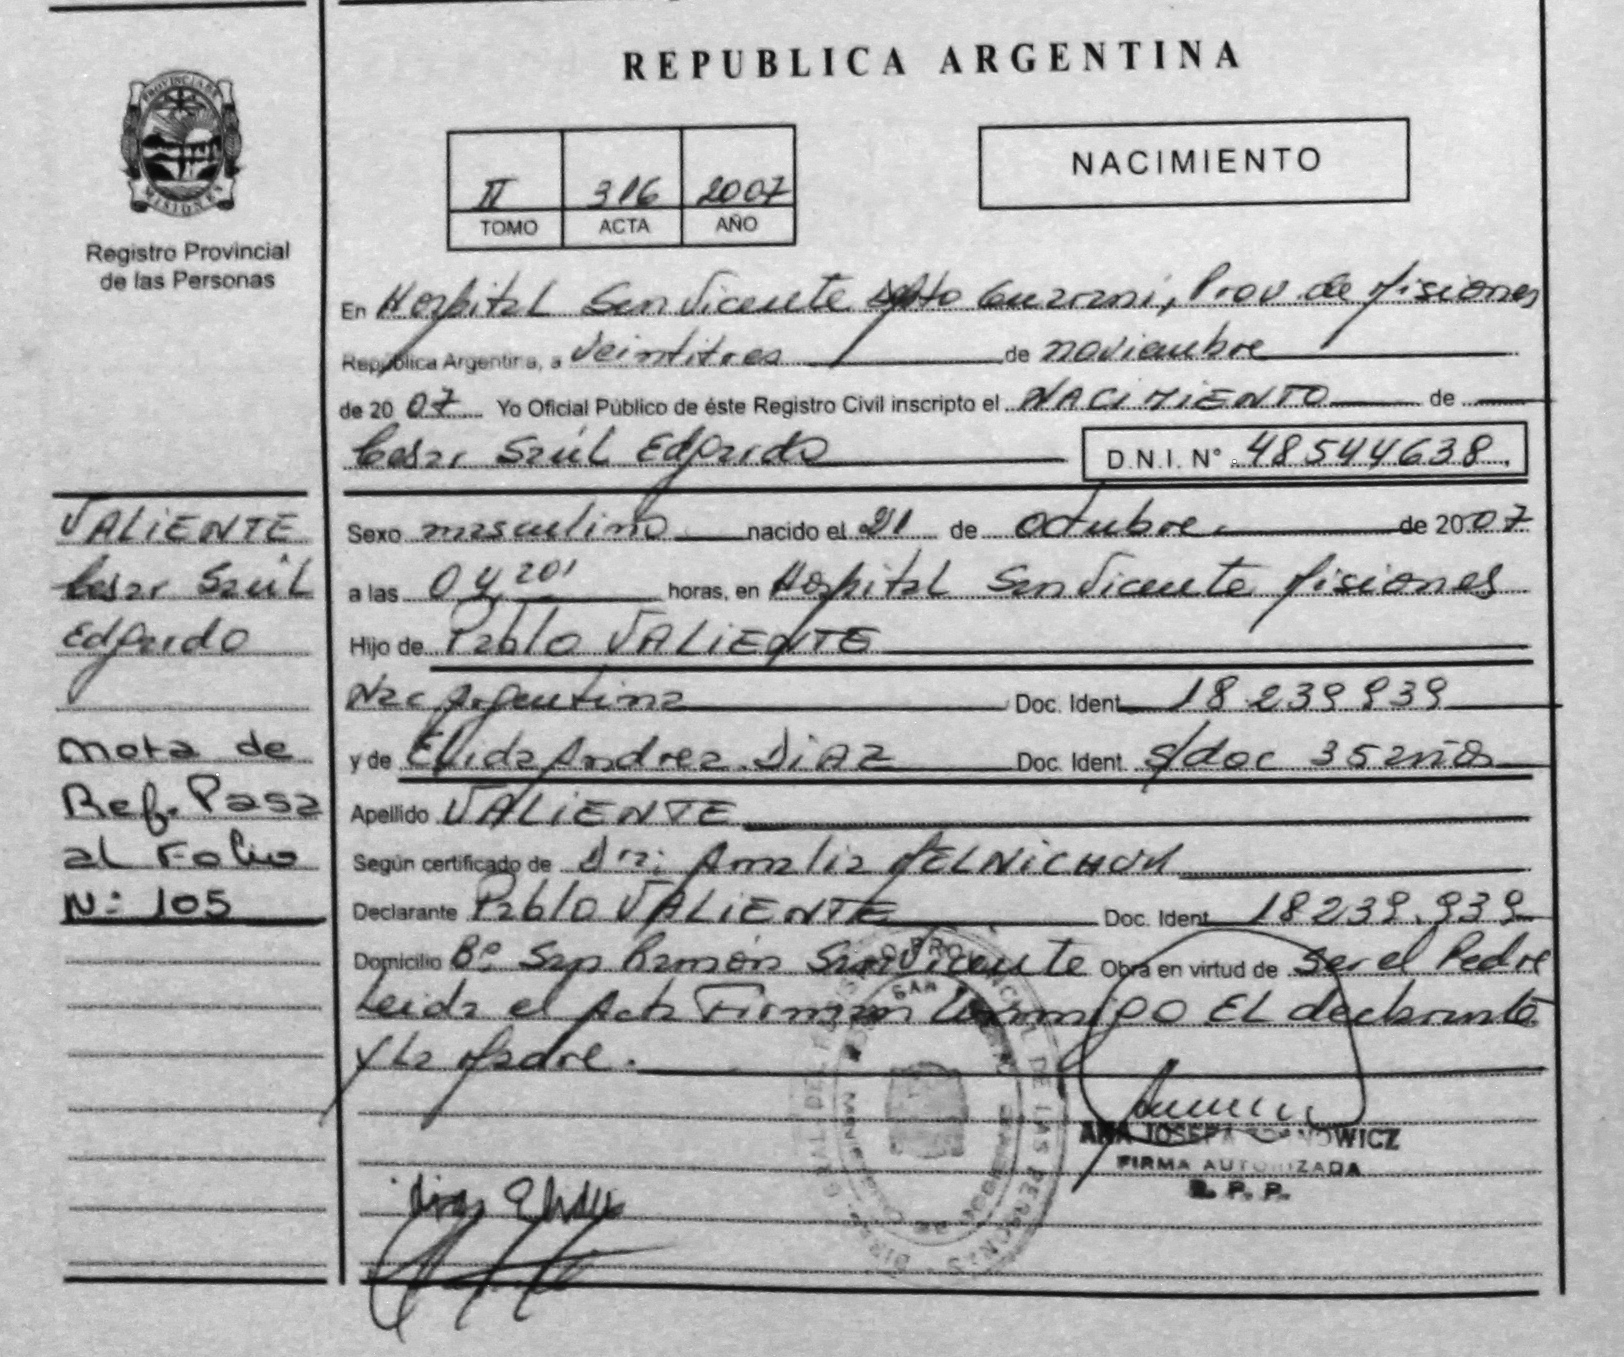 REPUBLICA ARGENTINA
PROVINCIA DE
MISIONES
Registro Provincial
de las Personas
II 316 2007
TOMO ACTA AÑO
NACIMIENTO
En Hospital San Vicente Dpto Guaraní, Prov. de Misiones
República Argentina, a veintitres de noviembre
de 2007 Yo Oficial Público de éste Registro Civil inscripto el NACIMIENTO de
Cesar Saúl Edgardo D.N.I. N° 48544638.
VALIENTE
Cesar Saúl
Edgardo
Nota de
Ref. Pasa
al Folio
N: 105
Sexo masculino nacido el 21 de octubre de 2007
a las 04 20' horas, en Hospital San Vicente Misiones
Hijo de Pablo VALIENTE
Nac Argentina Doc. Ident. 18.239.939
y de Elida Andrea DIAZ Doc. Ident. s/doc 35 años
Apellido VALIENTE
Según certificado de Dra: Amalia MELNICHUK
Declarante Pablo VALIENTE Doc. Ident. 18239.939
Domicilio B° San Ramón San Vicente Obra en virtud de ser el Padre
Leida el Acta Firman Conmigo EL declarante
y la Madre.
ANA JOSEFA
FIRMA AUTORIZADA
R. P. P.